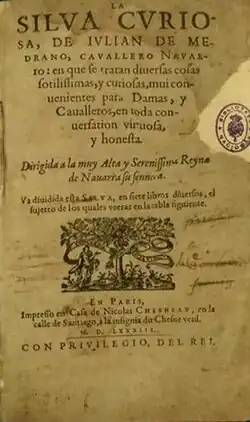 LA
SILVA CVRIO-
SA, DE IVLIAN DE ME-
DRANO, CAVALLERO NAVAR-
ro: en que se tratan diuersas cosas
sotilissimas, y curiosas, mui con-
uenientes para Damas, y
Caualleros, en toda con-
uersation virtuosa,
y honesta.
Dirigida a la muy Alta y Serenissima Reyna
de Nauarra su sennora.
Va diuidida esta SILVA, en siete libros diuersos, el
sujetto de los quales veeras en la tabla siguiente.
EN PARIS,
Impresso en Casa de Nicolas CHESNEAV, en la
calle de Santiago, à la insignia du Chesne verd.
M. D. LXXXIII.
CON PRIVILEGIO, DEL REI.